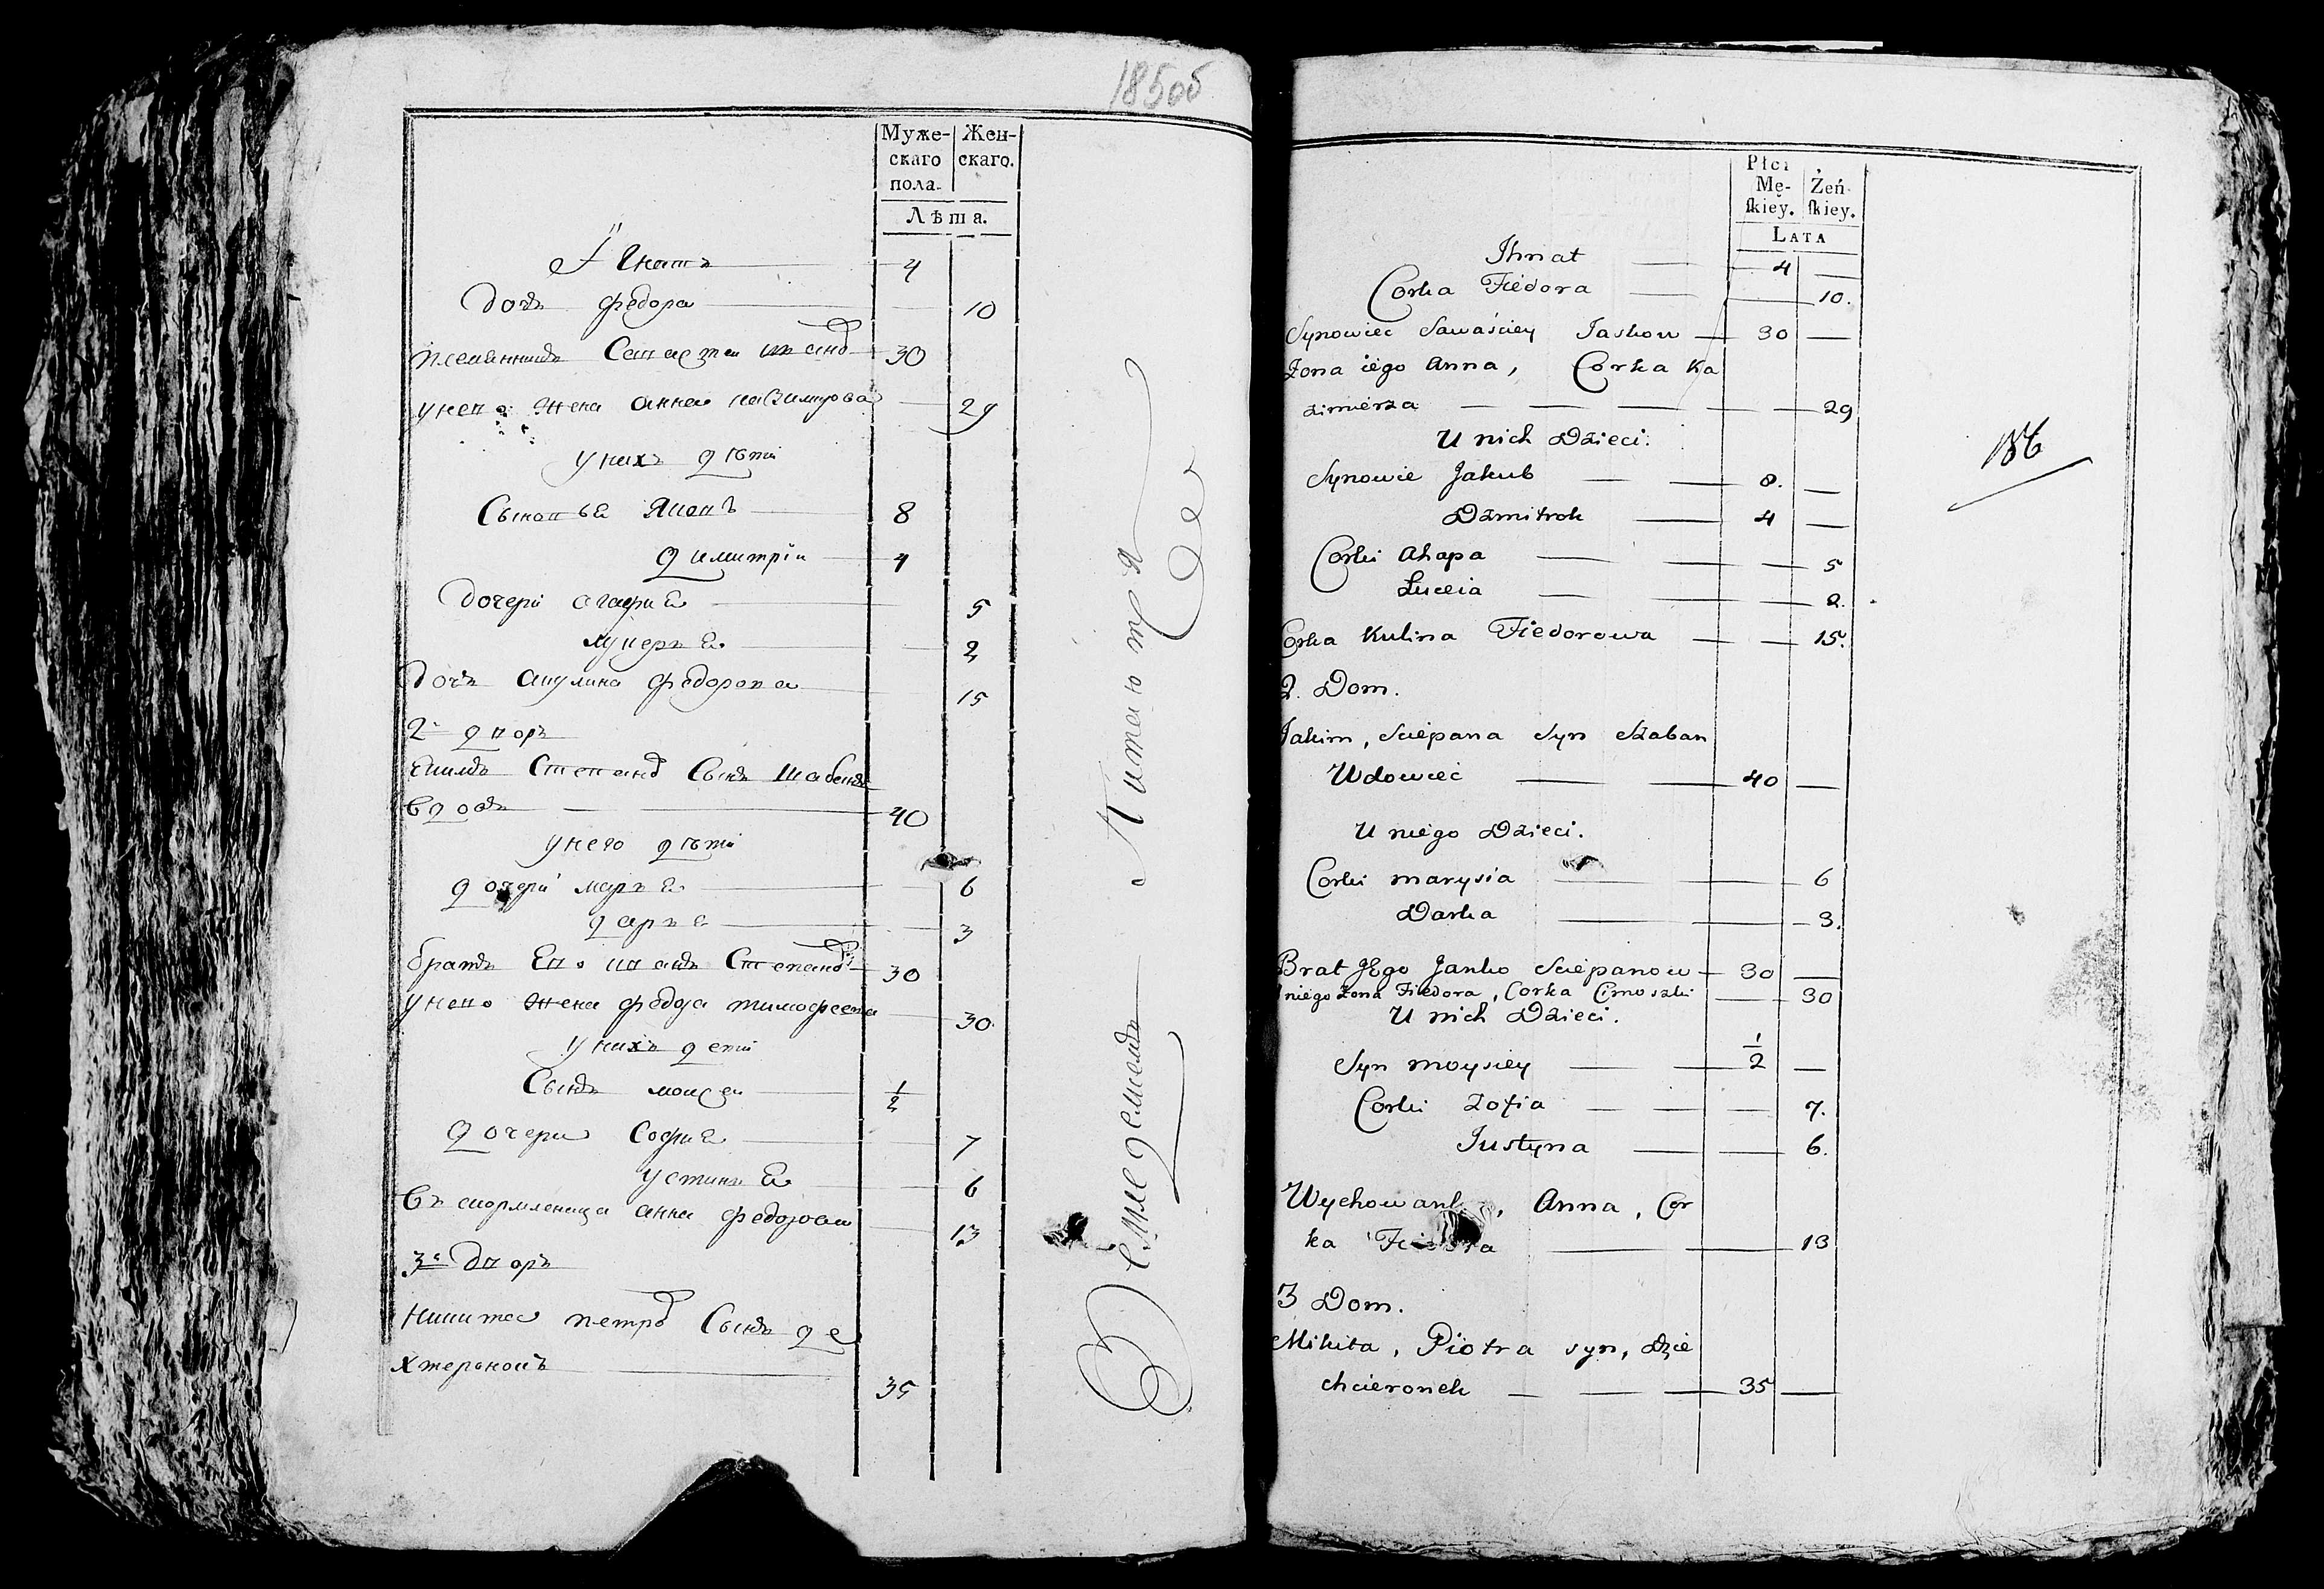 185об
Муже-
скаго
пола.
Жен-
скаго.
Лѣта.
Игнатъ 4
Дочь федора 10
племянникъ Савастеи Ивановъ 30
у него жена анна казимирова 29
у нихъ дѣти
Сыновья Яковъ 8
димитрiи 4
Дочери агафиа 5
луцериа 2
Дочь акулина федорова 15
2й дворъ
Якимъ Степановъ Сынъ шабанъ
вдовъ 40
у него дѣти
дочери мариа 6
дариа 3
братъ Его иванъ Степановъ 30
у него жена федора тимофеева 30
у нихъ дети
Сынъ моисеи 1/2
дочери Софиа 7
устиниа 6
Въскормленица анна федорова 13
3й Дворъ
Никита петровъ Сынъ де
хтеронокъ 35
Землемеръ
Płci
Mę-
ſkiey.
Żeń-
ſkiey.
LATA
Ihnat 4
Corka Fiedora 10.
Synowiec Sawaściey Jaskow 30
Żona iego Anna, Corka Ka
zimierza 29
U nich Dzieci.
Synowie Jakub 8.
Dzmitrok 4
Corki Ahapa 5
Łuceia 2.
Corka Kulina Fiedorowa 15.
2. Dom.
Jakim, Sciepana Syn Szaban
Wdowiec 40
U niego Dzieci.
Corki Marysia 6
Darka 3.
Brat Jego Janko Sciepanow 30
niego Żona Fiedora, Corka Cimoszki 30
U nich Dzieci.
Syn Moysiey 1/2
Corki Zofia 7.
Justyna 6.
Wychowank, Anna, Cor
ka 13
3 Dom.
Mikita, Piotra syn, dzie
chcieronek 35
186